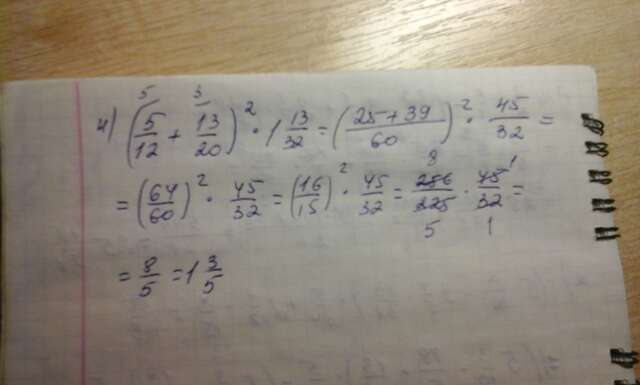 4) (5/12 ⁵ + 13/20 ³)² · 1 13/32 = ((25+39)/60)² · 45/32 =
= (64/60)² · 45/32 = (16/15)² · 45/32 = 256/225 · 45/32 = 8 1 5 1
= 8/5 = 1 3/5